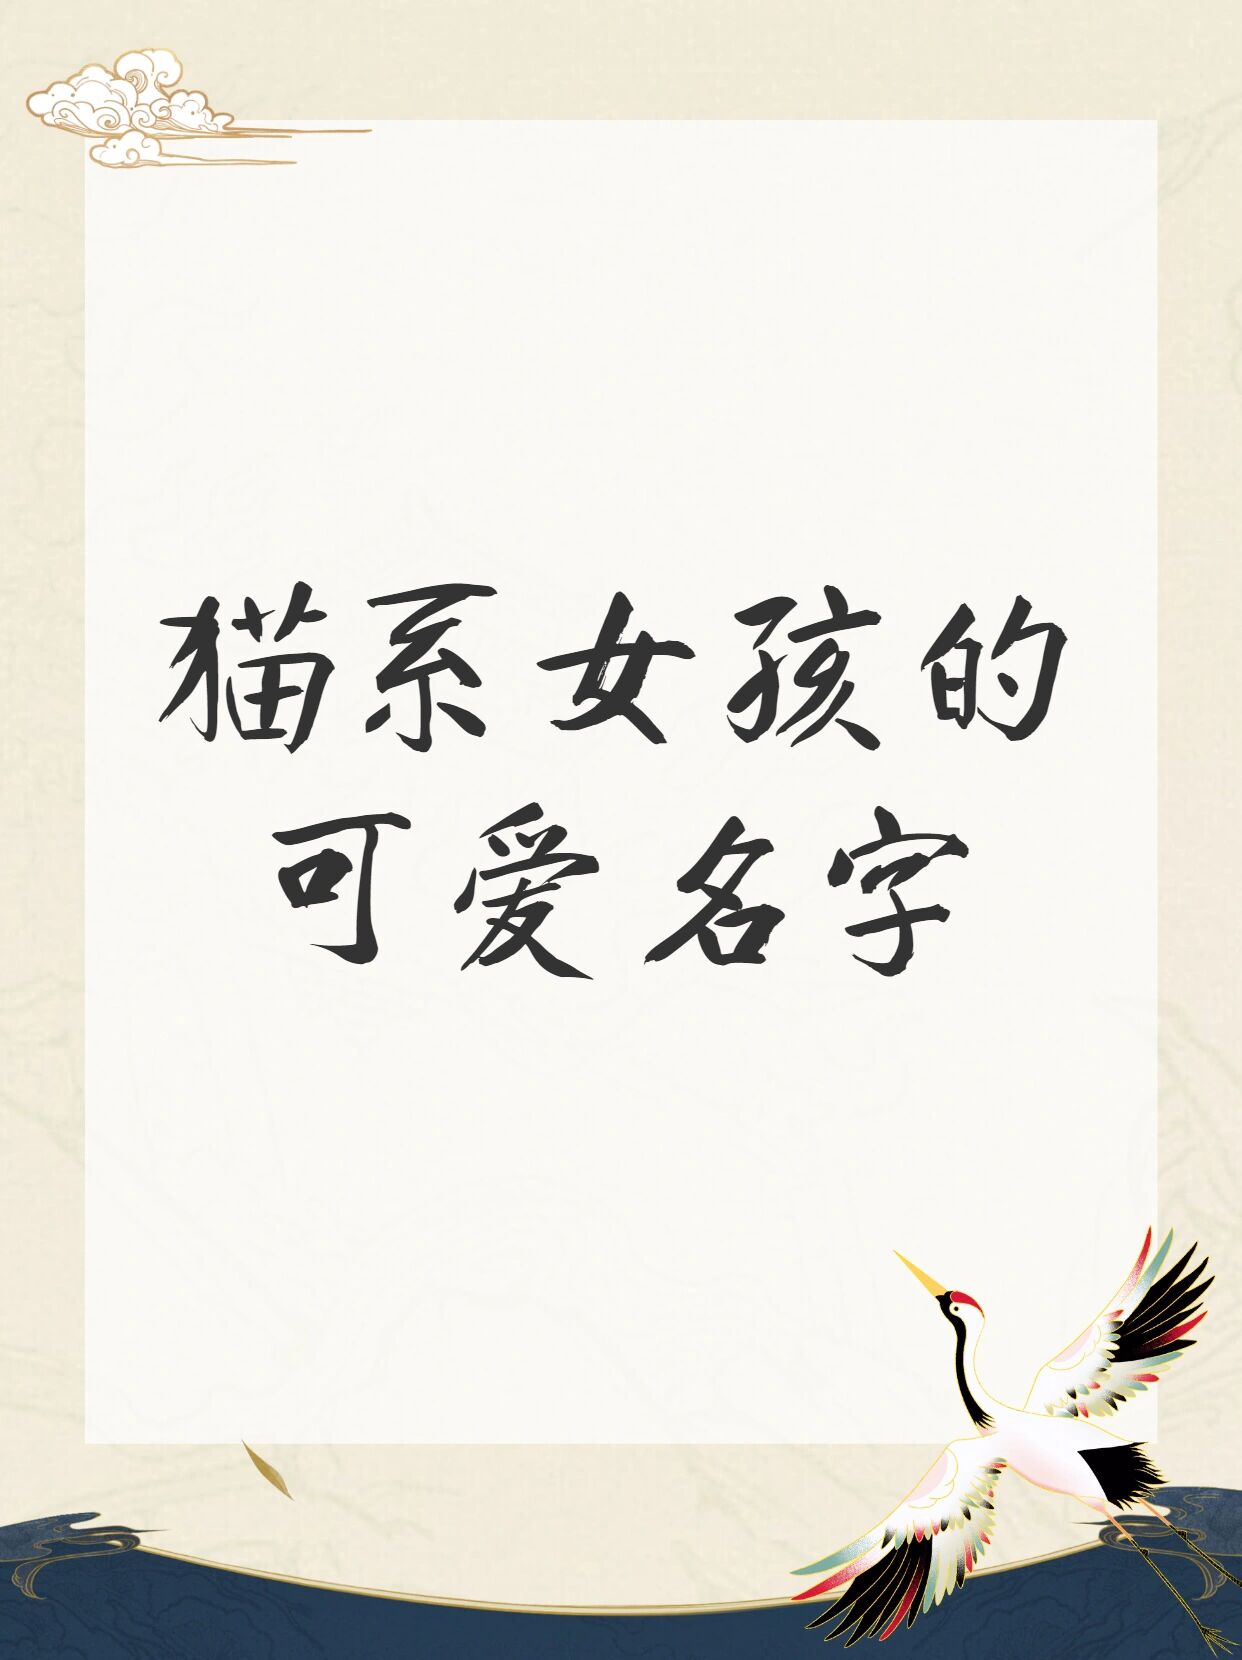 猫系女孩的
可爱名字